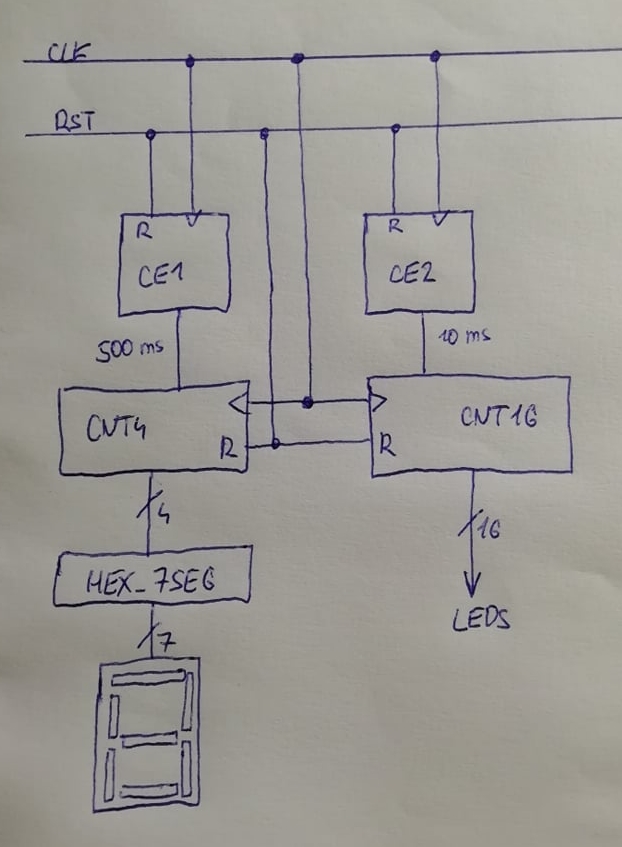 CLK
RST
R
R
CE1
CE2
500 ms
10 ms
CNT4
CNT16
R
R
4
16
HEX_7SEG
LEDS
7